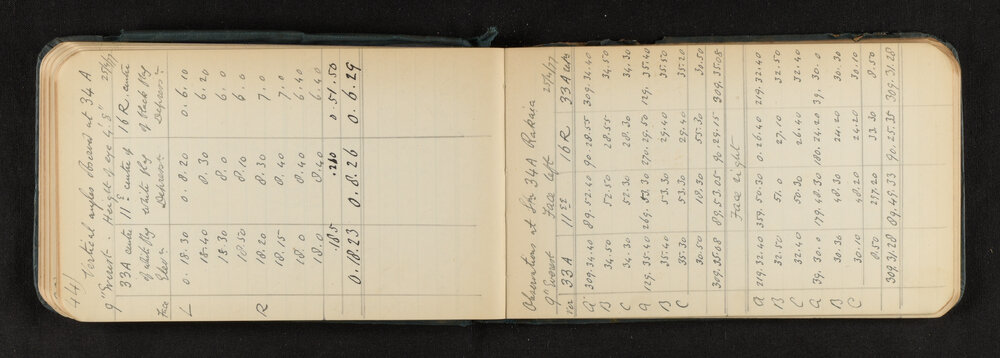 44)
Vertical angles observed at 34 A
9" Everest. Height of eye 4.5" 25/4/77
33A centre 11 EE centre of 16 R. centre
of white flag white flag of black flag
Face Elevn Depressn Depressn
L 0.18.30 0.8.20 0.6.10
18.40 8.30 6.20
18.30 8.0 6.0
18.50 8.10 6.0
R 18.20 8.30 7.0
18.15 8.40 7.0
18.0 8.40 6.40
18.0 8.40 6.40
.185 .210 0.51.50
0.18.23 0.8.26 0.6.29
Observations at Stn 34A Rakaia
9" Everest Face left 25/4/77
ver 33A 11 EE 16 R 33A
A 309.34.40 89.52.40 90.28.55 309.34.40
B 34.50 52.50 28.55 34.50
C 34.30 52.30 28.30 34.30
A 129.35.40 269.53.30 270.29.50 129.35.40
B 35.40 53.30 29.40 35.50
C 35.30 53.30 29.40 35.20
30.50 18.30 55.30 30.50
309.35.08 89.53.05 90.29.15 309.35.08
Face right
A 219.32.40 359.50.30 0.26.40 219.32.40
B 32.50 51.0 27.10 32.50
C 32.40 50.30 26.40 32.40
A 39.30.0 179.48.30 180.24.20 39.30.0
B 30.30 48.30 24.20 30.30
C 30.10 48.20 24.20 30.10
8.50 297.20 33.30 8.50
309.31.28 89.49.33 90.25.35 309.31.28